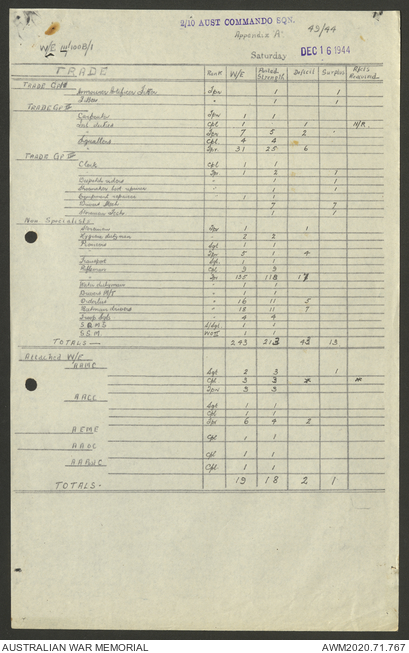 2/10 AUST COMMANDO SQN. 49/44
Appendix 'A'
W/E III/100B/1
Saturday DEC 16 1944
TRADE Rank W/E Posted Strength Deficit Surplus Rfts Required
TRADE GP II
Tpr 1 1
Fitter " 1 1
TRADE GP II
Carpenter Tpr 1 1
Cpl 1 1 N.R.
" Tpr 7 5 2
Signallers Cpl 4 4
" Tpr 31 25 6
TRADE GP III
Clerk Cpl 1 1
" Tpr 1 2 1
Despatch riders " 1 1
Shoemaker boot repairer " 1 1
Equipment repairer " 1 1
7 7
1 1
Non Specialists
Tpr 1 1
Hygiene dutyman " 2 2
Pioneers Sgt 1 1
" Tpr 5 1 4
Transport Sgt 1 1
Rifleman Cpl 9 9
" Tpr 135 118 17
Water dutyman " 1 1
" 1 1
Orderlies " 16 11 5
Batman drivers " 18 11 7
Troop Sgts " 4 4
S.Q.M.S. S/Sgt 1 1
S.S.M. WO II 1 1
TOTALS — 243 213 43 13
Attached W/E
AAMC
Sgt 2 3 1
Cpl 3 3
Tpr 3 3
AACC
Sgt 1 1
Cpl 1 1
Tpr 6 4 2
AEME
Cpl 1 1
AAOC
Cpl 1 1
AAPC
Cpl 1 1
TOTALS - 19 18 2 1
AUSTRALIAN WAR MEMORIAL AWM2020.71.767